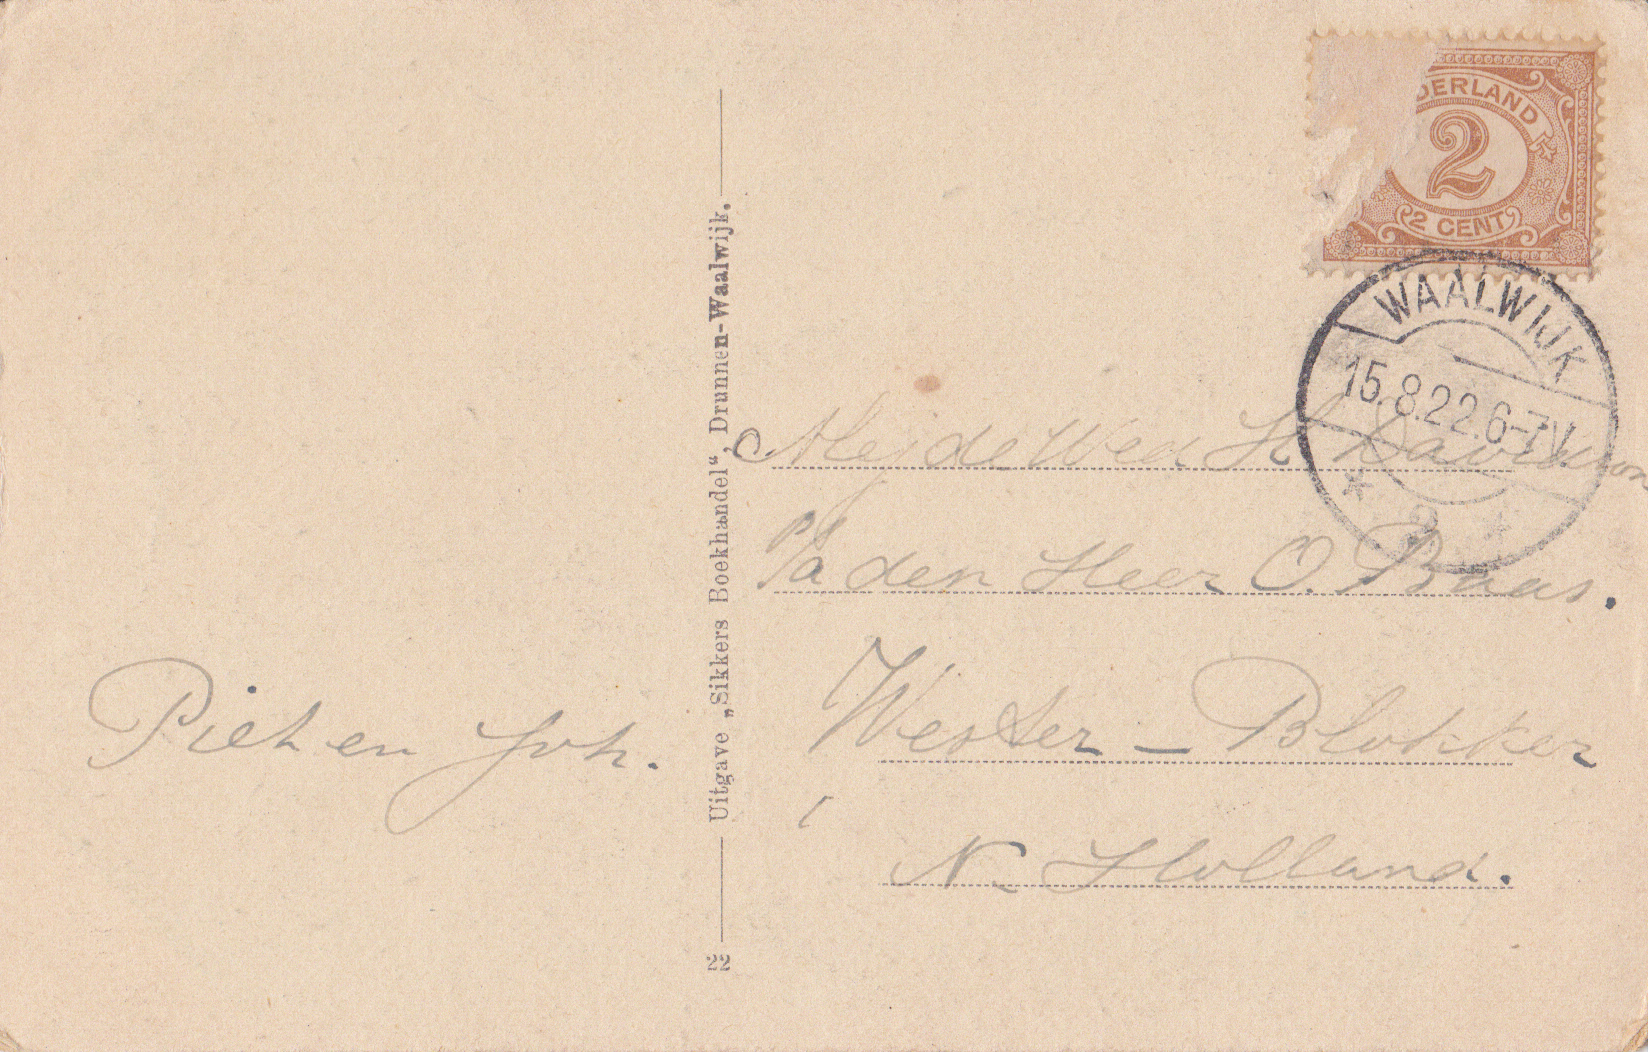 Piet en Joh.
Uitgave „Sikkers Boekhandel“, Drunnen-Waalwijk.
22
DERLAND
2
2 CENT
WAALWIJK
15.8.22.6-7V.
de Wed H
P/a den Heer O. Baas.
Wester – Blokker
N- Holland.